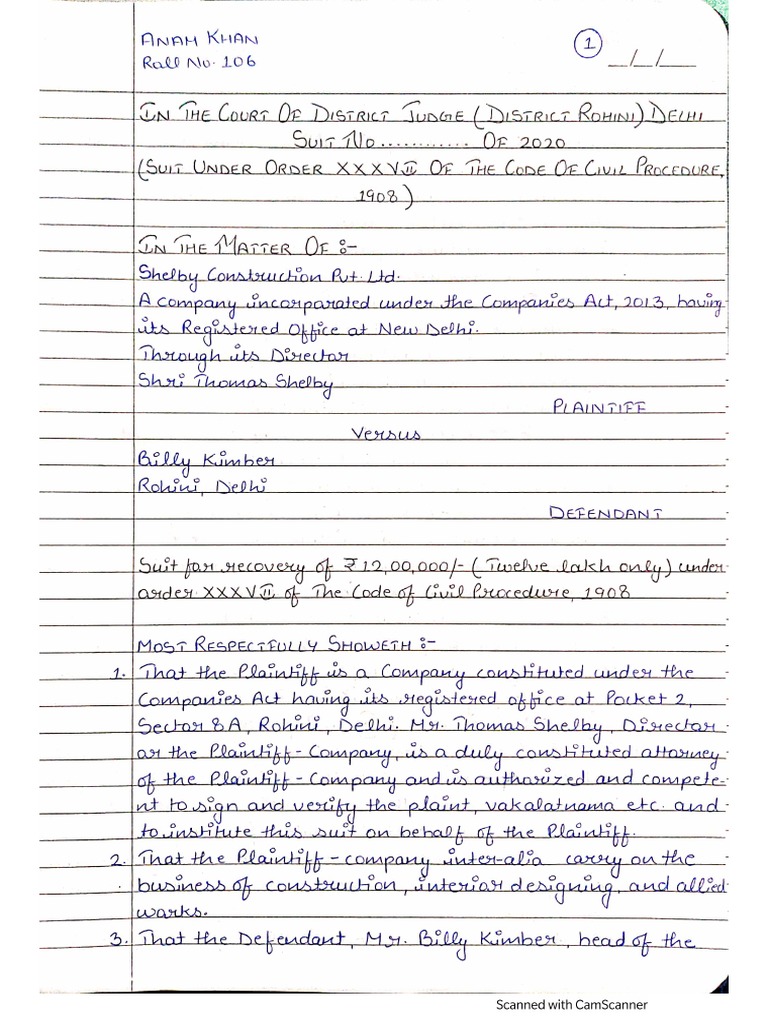 ANAM KHAN
Roll No. 106
1
__/__/__
IN THE COURT OF DISTRICT JUDGE (DISTRICT ROHINI) DELHI
SUIT NO............ OF 2020
(SUIT UNDER ORDER XXXVII OF THE CODE OF CIVIL PROCEDURE,
1908)
IN THE MATTER OF :-
Shelby Construction Pvt. Ltd.
A company incorporated under the Companies Act, 2013, having
its Registered Office at New Delhi.
Through its Director
Shri Thomas Shelby
PLAINTIFF
Versus
Billy Kimber
Rohini, Delhi
DEFENDANT
Suit for recovery of ₹12,00,000/- (Twelve lakh only) under
order XXXVII of The Code of Civil Procedure, 1908
MOST RESPECTFULLY SHOWETH :-
1. That the Plaintiff is a Company constituted under the
Companies Act having its registered office at Pocket 2,
Sector 8A, Rohini, Delhi. Mr. Thomas Shelby, Director
or the Plaintiff-Company, is a duly constituted attorney
of the Plaintiff-Company and is authorized and compete-
nt to sign and verify the plaint, vakalatnama etc. and
to institute this suit on behalf of the Plaintiff.
2. That the Plaintiff-company inter-alia carry on the
business of construction, interior designing, and allied
works.
3. That the Defendant, Mr. Billy Kimber, head of the
Scanned with CamScanner